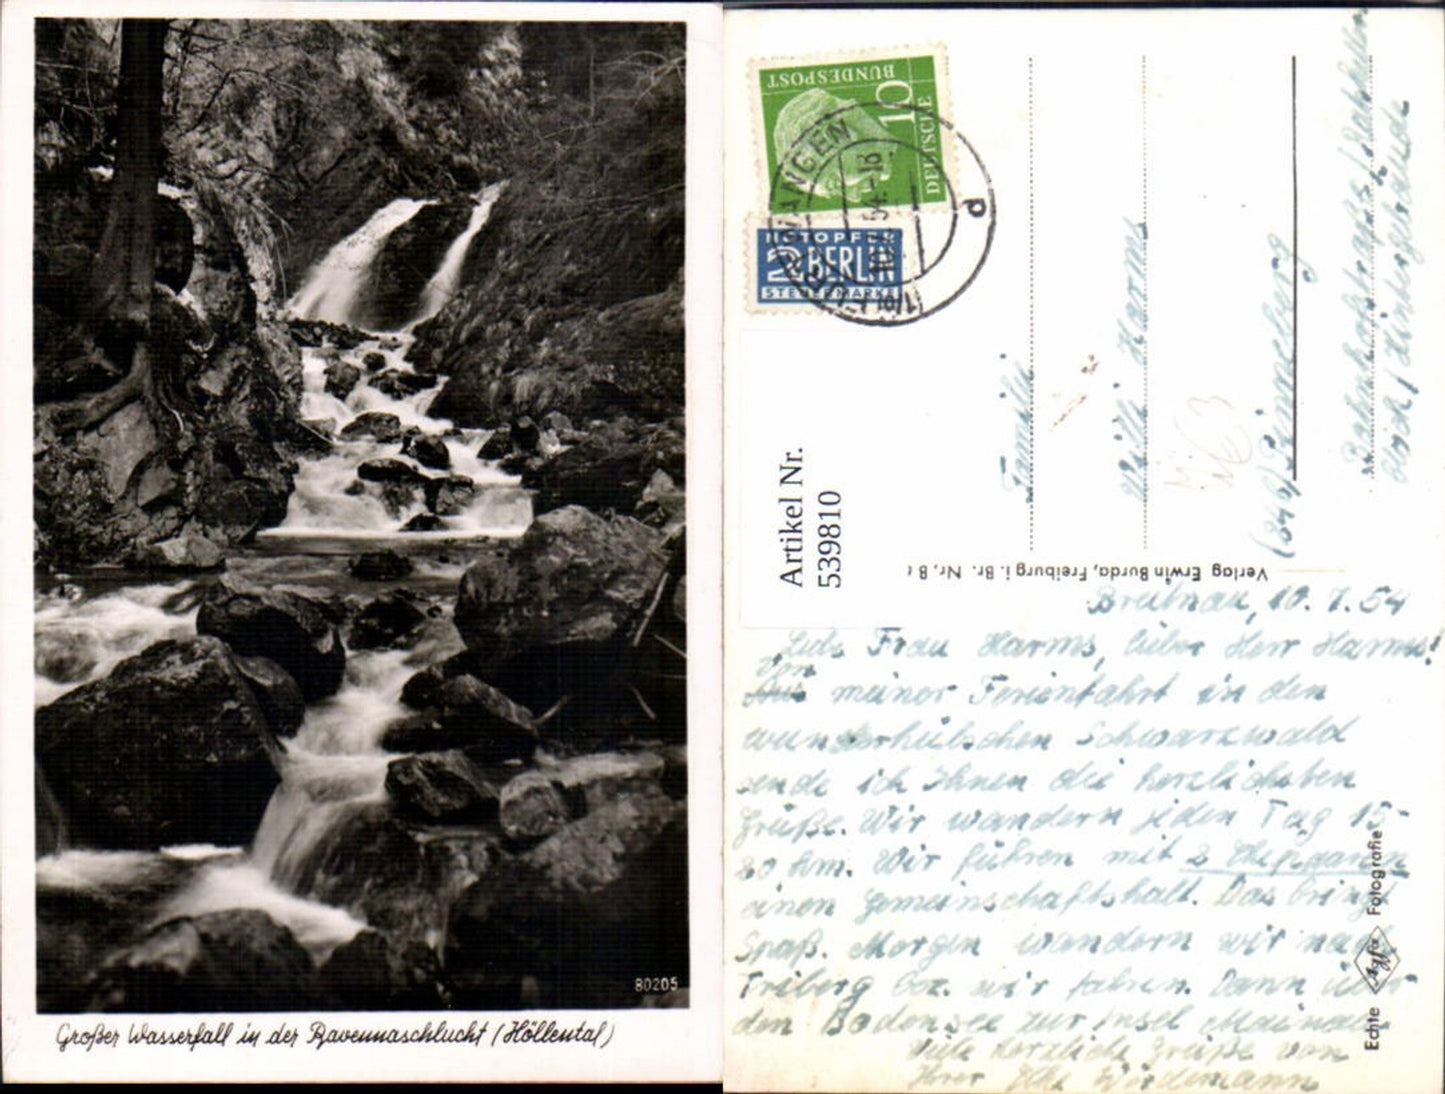 80205
Großer Wasserfall in der Ravennaschlucht (Höllental)
10
DEUTSCHE
BUNDESPOST
NOTOPFER
2 BERLIN
STEUERMARKE
FURTWANGEN
d
Artikel Nr.
539810
Familie
Willi Harms
Bahnhofstraße
Hoch / Hintergebäude
Verlag Erwin Burda, Freiburg i. Br. Nr. B
Breitnau, 10. 7. 54
Liebe Frau Harms, lieber Herr Harms!
Von meiner Ferienfahrt in den
wunderhübschen Schwarzwald
sende ich Ihnen die herzlichsten
Grüße. Wir wandern jeden Tag 15-
20 km. Wir führen mit 2 Ehepaaren
einen Gemeinschaftshalt. Das bringt
Spaß. Morgen wandern wir nach
Triberg bzw. wir fahren. Dann über
den Bodensee zur Insel Mainau
Viele herzliche Grüße von
Ihrer Elke Wördemann
Echte Agfa Fotografie